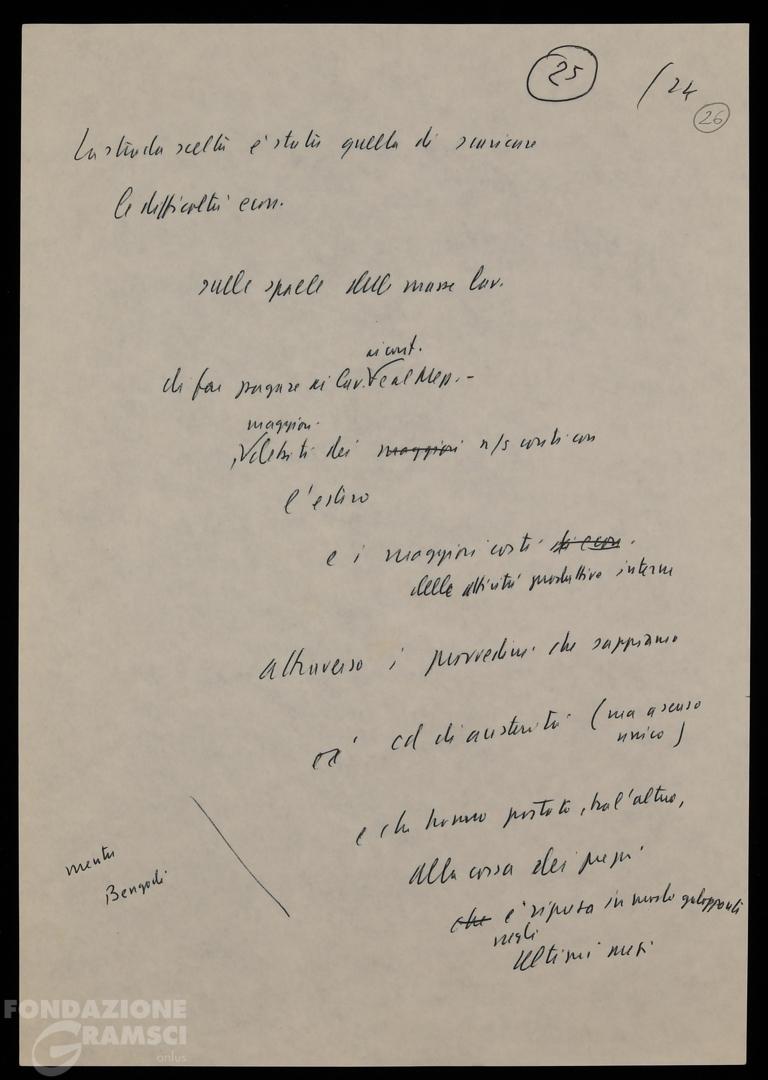 25
/24
26
La strada scelta è stata quella di scaricare
le difficoltà econ.
sulle spalle delle masse lav.
ai cont.
di far pagare ai lav. e al Mep. -
maggiori
debiti dei maggiori n/s conti con
l'estero
e i maggiori costi di econ.
delle attività produttive interne
attraverso i provvedim. che sappiamo
cd di austerità (ma a senso
unico)
e che hanno portato, tra l'altro,
alla corsa dei prezzi
che è ripresa in modo galoppante
negli
ultimi mesi
mentre
Bengodi
FONDAZIONE
GRAMSCI
onlus